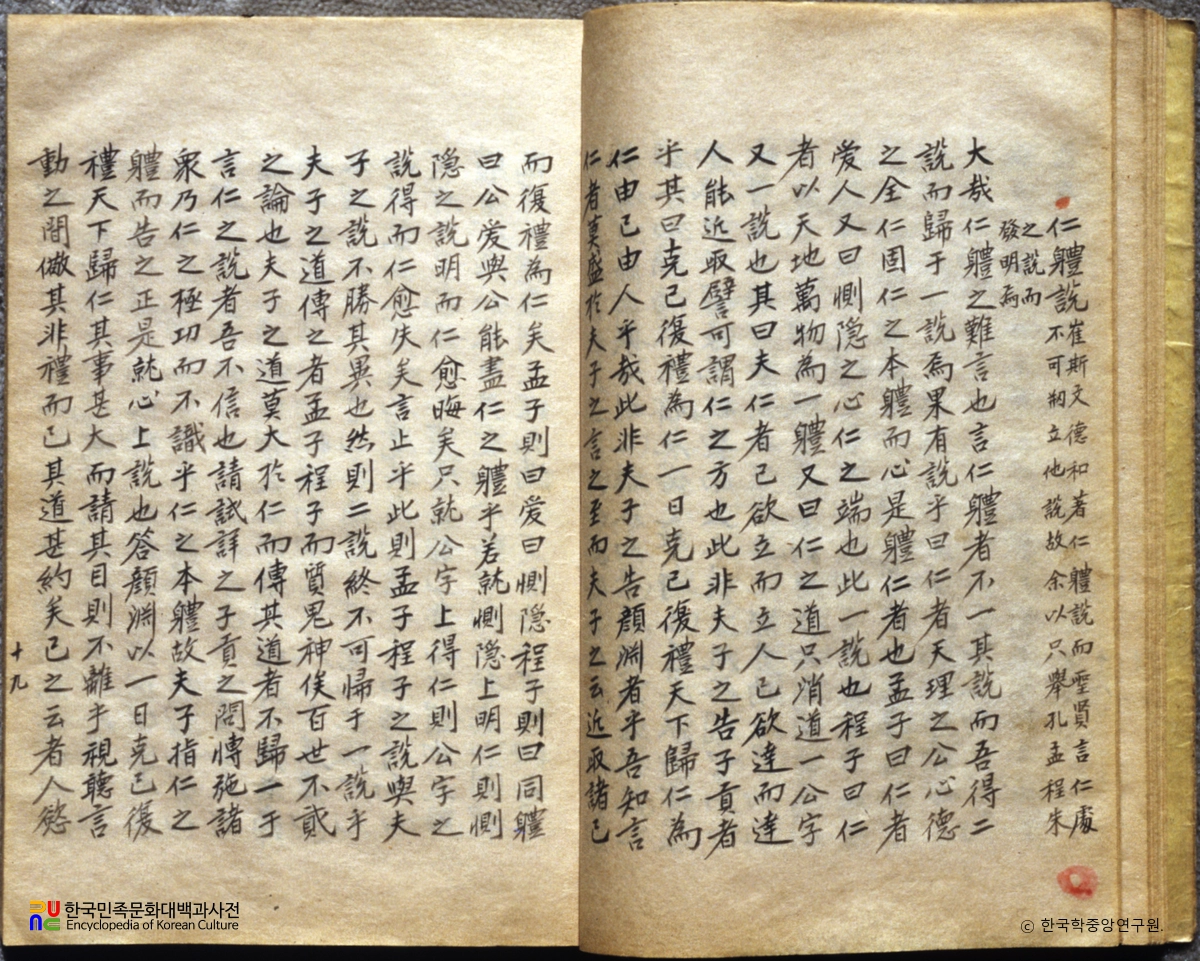 仁體說崔斯文德和著仁體說而聖賢言仁處
不可刱立他說故余以只擧孔孟程朱
之說而
發明焉
大哉仁體之難言也言仁體者不一其說而吾得二
說而歸于一說焉果有說乎曰仁者天理之公心德
之全仁固仁之本體而心是體仁者也孟子曰仁者
愛人又曰惻隐之心仁之端也此一說也程子曰仁
者以天地萬物為一體又曰仁之道只消道一公字
又一說也其曰夫仁者己欲立而立人己欲達而達
人能近取譬可謂仁之方也此非夫子之告子貢者
乎其曰克己復禮為仁一日克己復禮天下歸仁為
仁由己由人乎哉此非夫子之告顏淵者乎吾知言
仁者莫盛於夫子之言之至而夫子之云近取諸己
而復禮為仁矣孟子則曰愛曰惻隐程子則曰同體
曰公愛與公能盡仁之體乎若就惻隐上明仁則惻
隐之說明而仁愈晦矣只就公字上得仁則公字之
說得而仁愈失矣言止乎此則孟子程子之說與夫
子之說不勝其異也然則二說終不可歸于一說乎
夫子之道傳之者孟子程子而質鬼神俟百世不貳
之論也夫子之道莫大於仁而傳其道者不歸一于
言仁之說者吾不信也請試詳之子貢之問博施諸
衆乃仁之極功而不識乎仁之本體故夫子指仁之
體而告之正是就心上說也答顏淵以一日克己復
禮天下歸仁其事甚大而請其目則不離乎視聽言
動之間做其非禮而已其道甚約矣己之云者人慾
十九
한국민족문화대백과사전
Encyclopedia of Korean Culture
© 한국학중앙연구원.